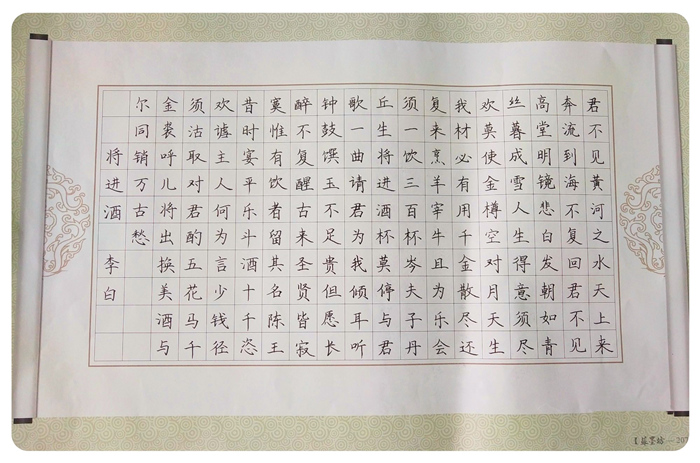 君不见黄河之水天上来
奔流到海不复回君不见
高堂明镜悲白发朝如青
丝暮成雪人生得意须尽
欢莫使金樽空对月天生
我材必有用千金散尽还
复来烹羊宰牛且为乐会
须一饮三百杯岑夫子丹
丘生将进酒杯莫停与君
歌一曲请君为我倾耳听
钟鼓馔玉不足贵但愿长
醉不复醒古来圣贤皆寂
寞惟有饮者留其名陈王
昔时宴平乐斗酒十千恣
欢谑主人何为言少钱径
须沽取对君酌五花马千
金裘呼儿将出换美酒与
尔同销万古愁
将进酒 李白